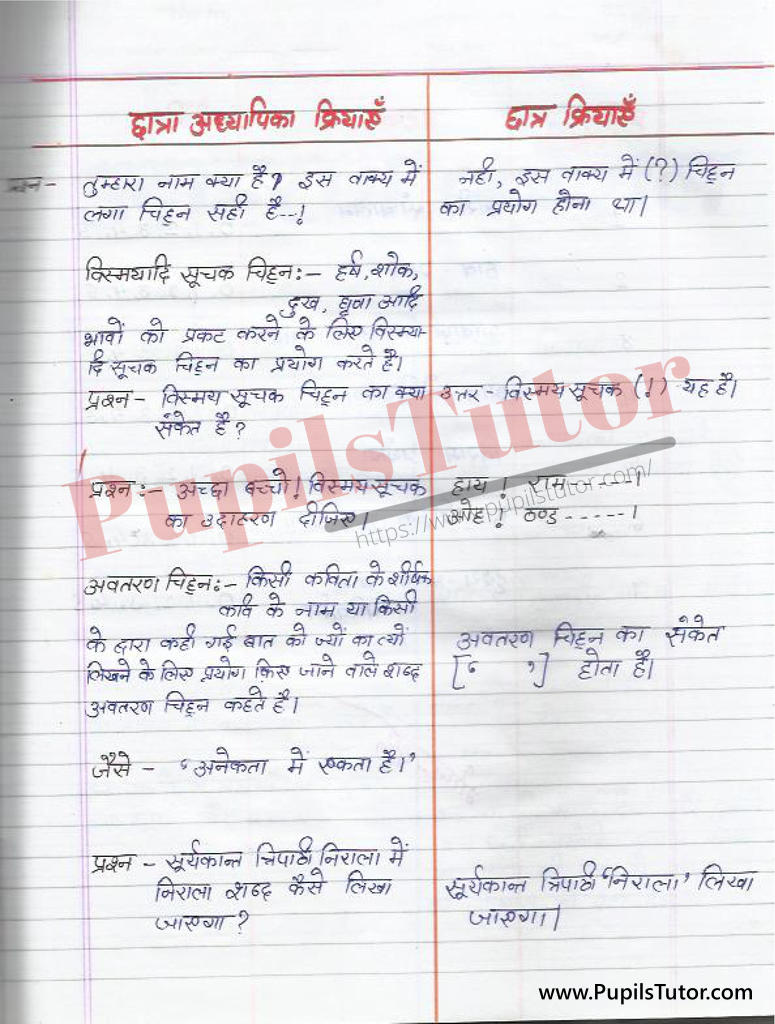 छात्रा अध्यापिका क्रियाएँ
छात्र क्रियाएँ
प्रश्न - तुम्हारा नाम क्या है? इस वाक्य में
लगा चिह्न सही है--!
नही, इस वाक्य में (?) चिह्न
का प्रयोग होना था।
विस्मयादि सूचक चिह्न:- हर्ष, शोक,
दुख, घृणा आदि
भावों को प्रकट करने के लिए विस्म्या-
दि सूचक चिह्न का प्रयोग करते है।
प्रश्न - विस्मय सूचक चिह्न का क्या
संकेत है?
उत्तर - विस्मय सूचक (!) यह है।
प्रश्न :- अच्छा बच्चो! विस्मय सूचक
का उदाहरण दीजिए।
हाय! राम -----।
ओह! ठण्ड -----।
अवतरण चिह्न:- किसी कविता के शीर्षक
कवि के नाम या किसी
के द्वारा कही गई बात को ज्यों का त्यों
लिखने के लिए प्रयोग किए जाने वाले शब्द
अवतरण चिह्न कहते है।
अवतरण चिह्न का संकेत
[‘ ’] होता है।
जैसे - ‘अनेकता में एकता है।’
प्रश्न - सूर्यकान्त त्रिपाठी निराला में
निराला शब्द कैसे लिखा
जाएगा?
सूर्यकान्त त्रिपाठी ‘निराला’ लिखा
जाएगा।
PupilsTutor
https://www.pupilstutor.com/
www.PupilsTutor.com